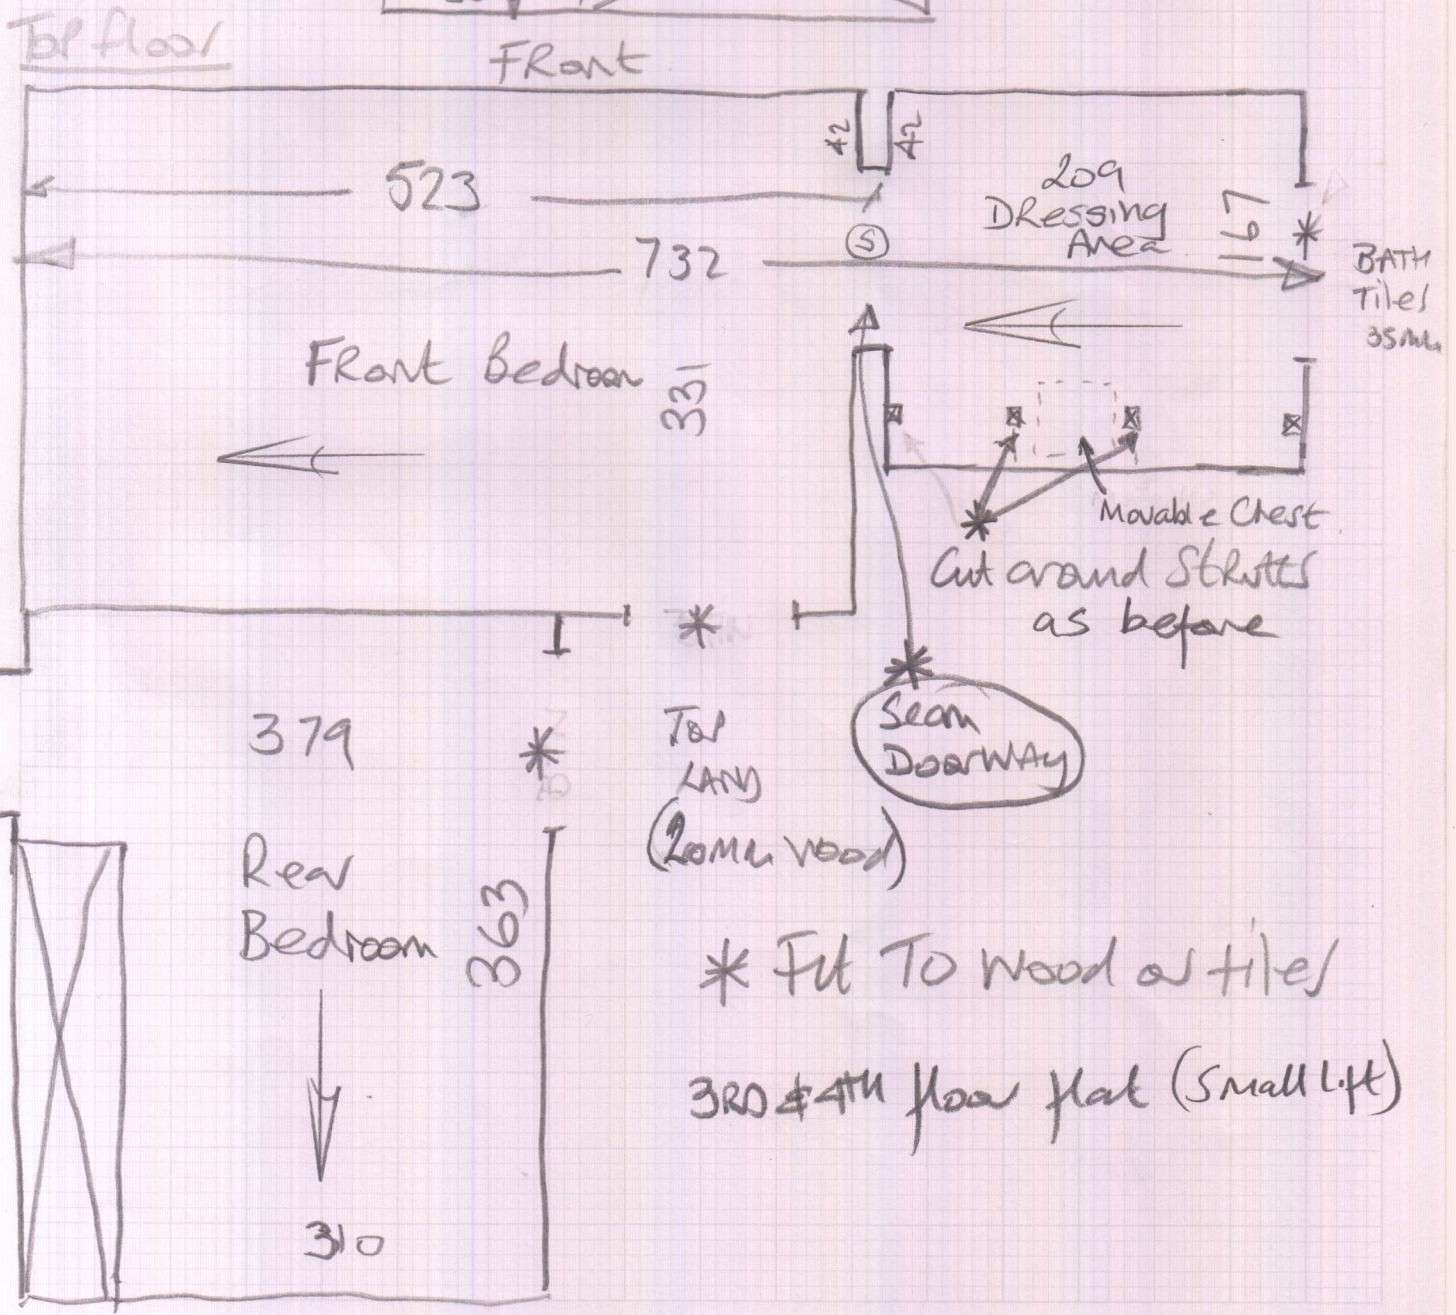 Top floor
FRont
42
42
523
209
DRessing
Area
167
S
732
BATH
Tiles
35mm
FRont Bedroom
331
Movable Chest
Cut around StRutts
as before
379
Top
LAND
(20mm wood)
Seam
DoorWAy
Rear
Bedroom
363
* Fit To wood or tiles
3RD & 4TH floor flat (Small Lift)
310